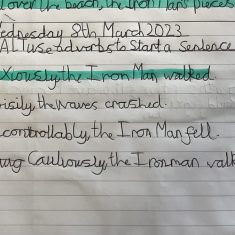 over the beach, the Iron Man's pieces
ednesday 8th March 2023
AL: I use adverbs to start a sentence
xiously, the Iron Man walked.
isily, the waves crashed.
controllably, the Iron Man fell.
Cautiously, the Iron man walk